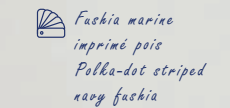 Fushia marine
imprimé pois
Polka-dot striped
navy fushia